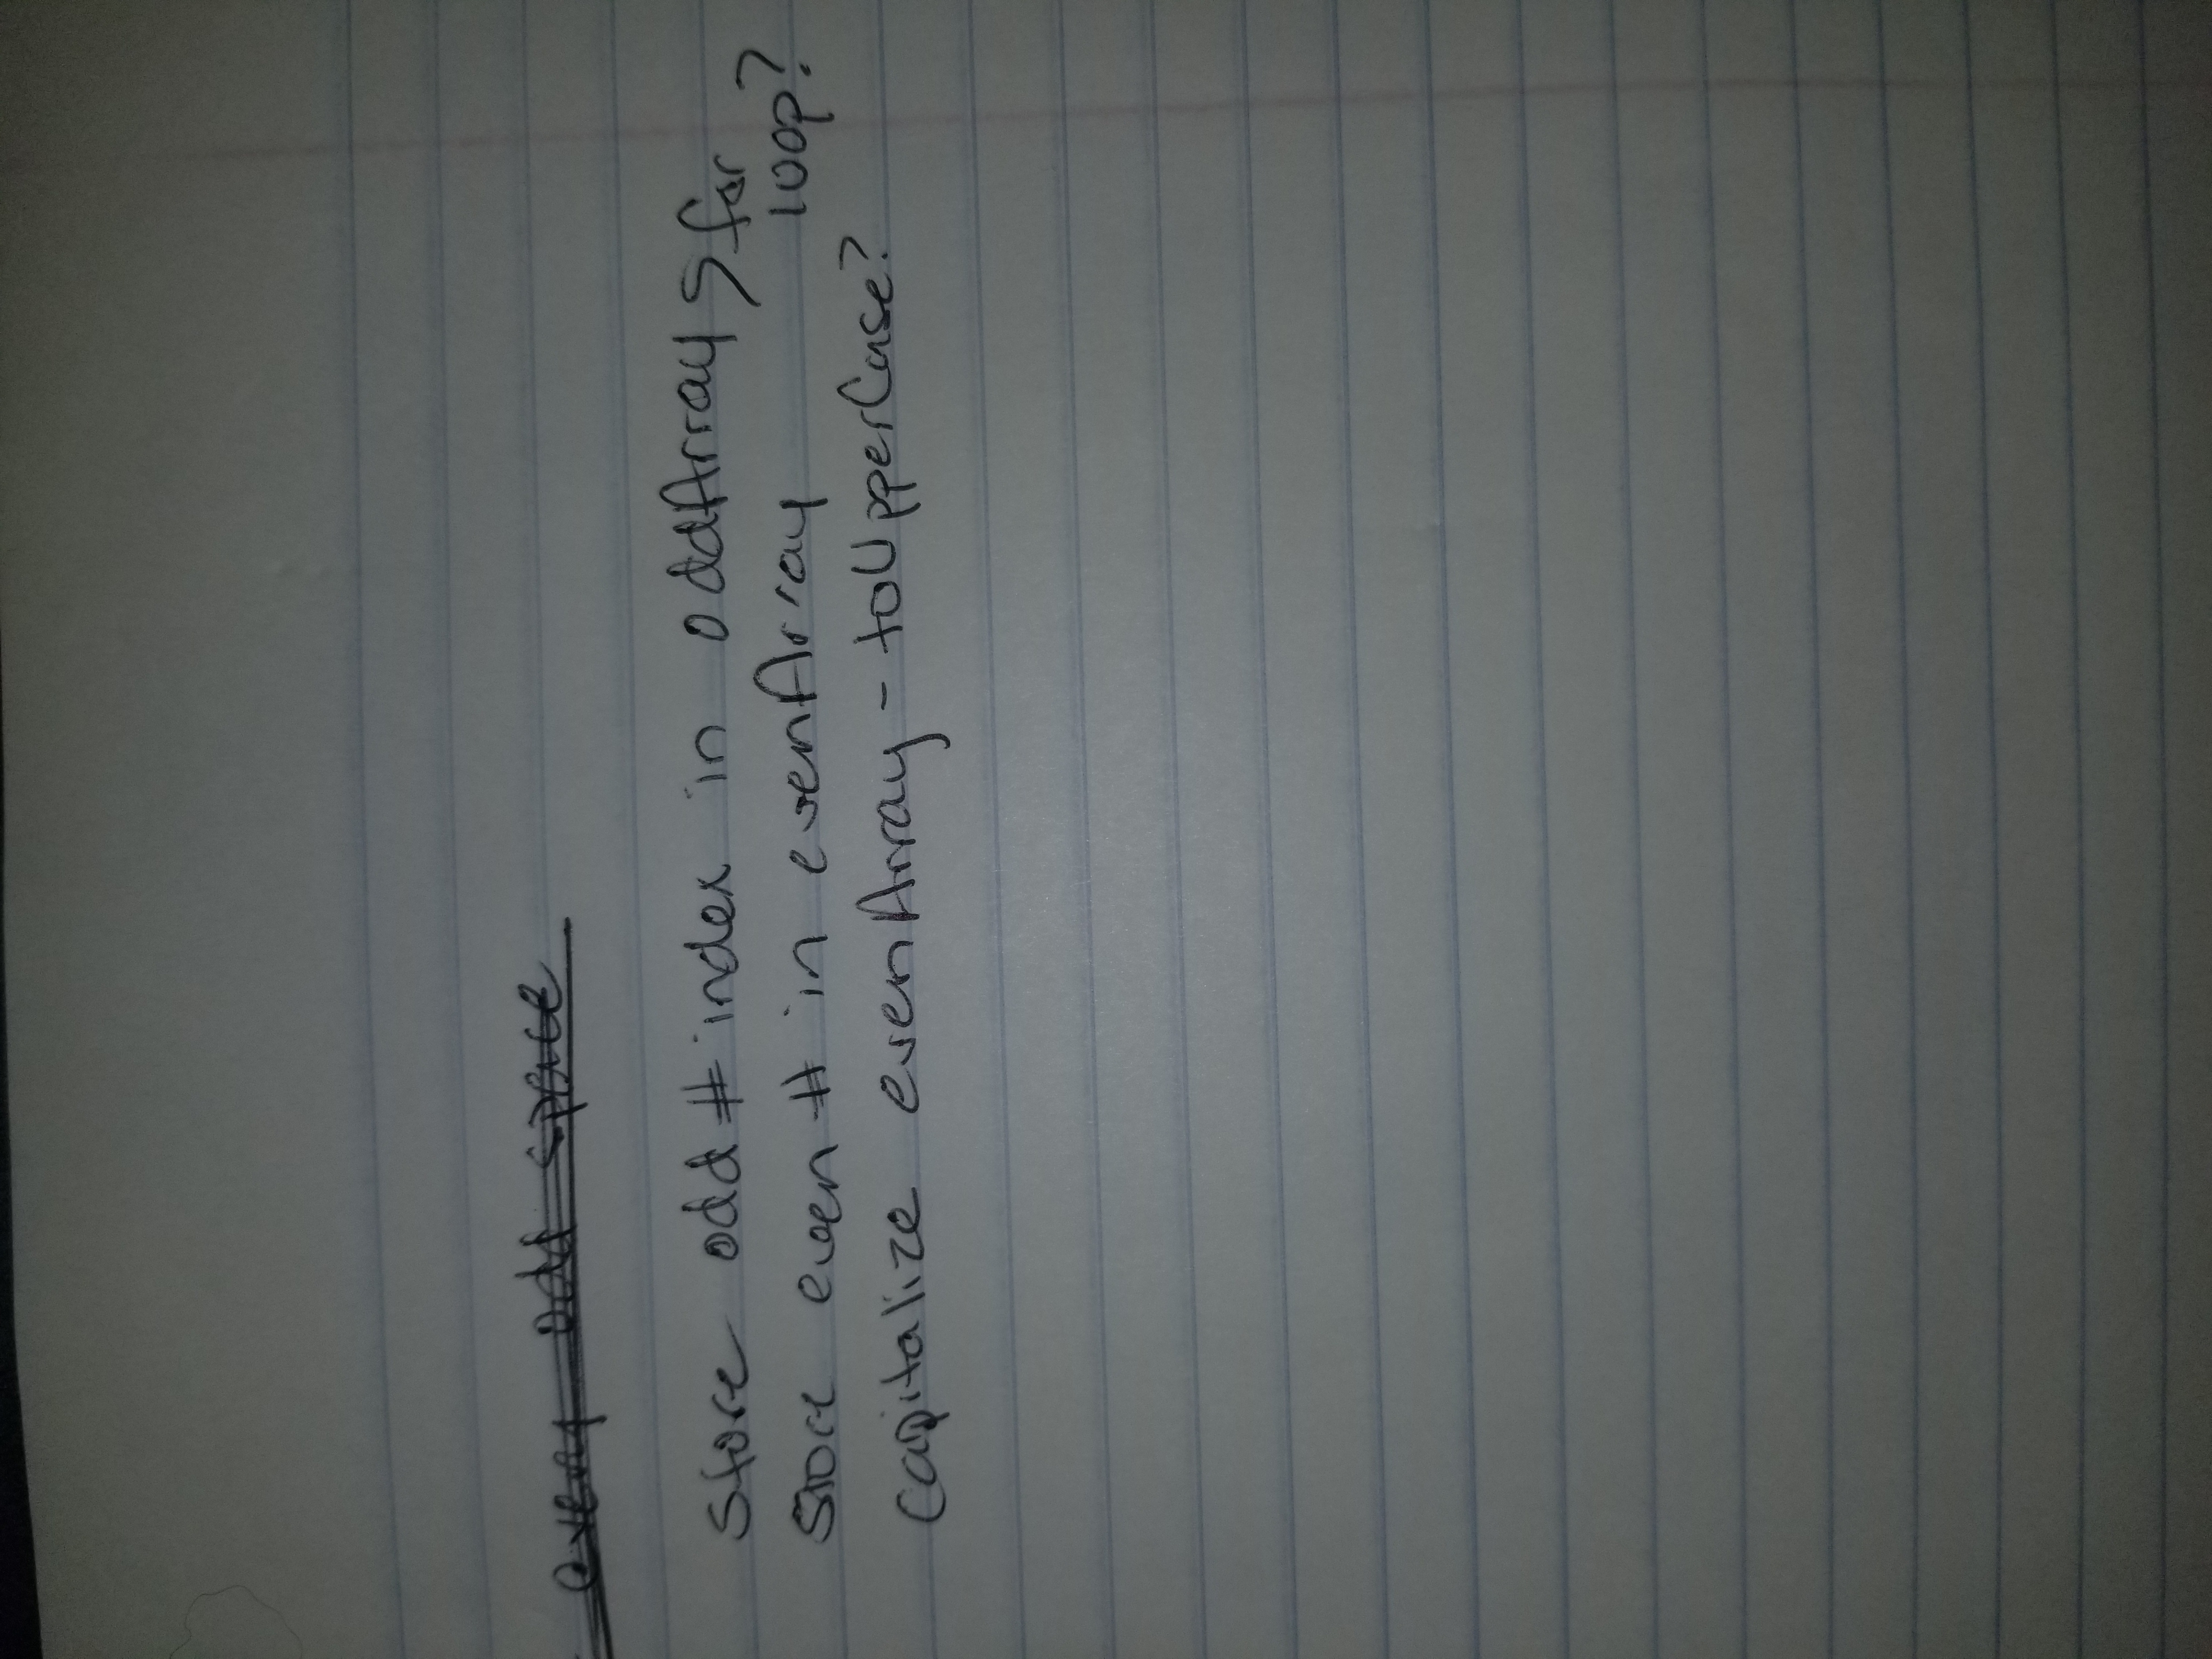 every odd space
Store odd # index in oddArray > for
Store even # in evenArray loop?
capitalize evenArray - toUpperCase?